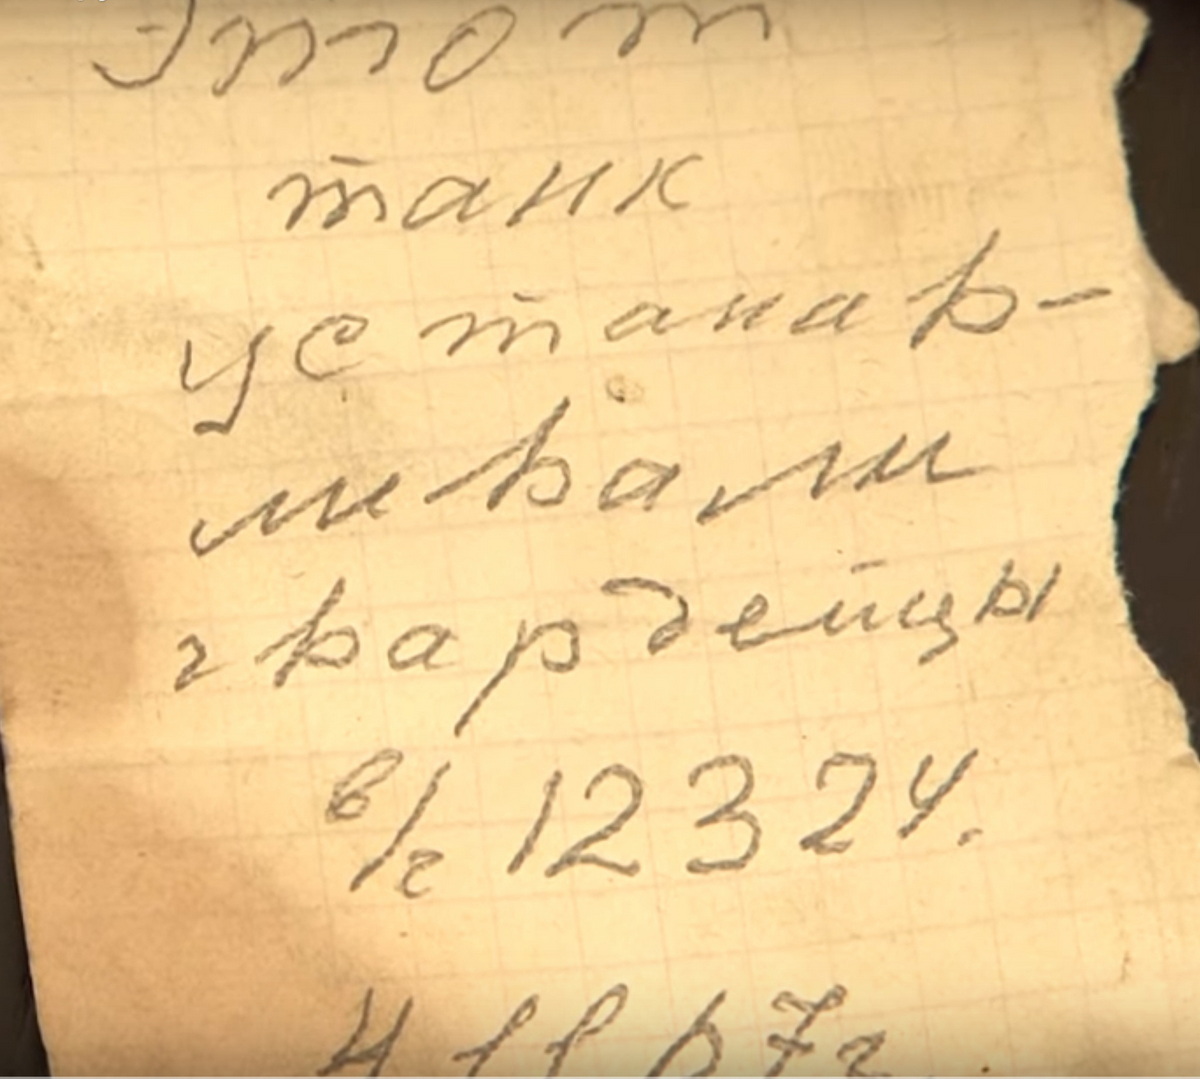 Этот
танк
устанав-
ливали
гвардейцы
в/ч 12324.